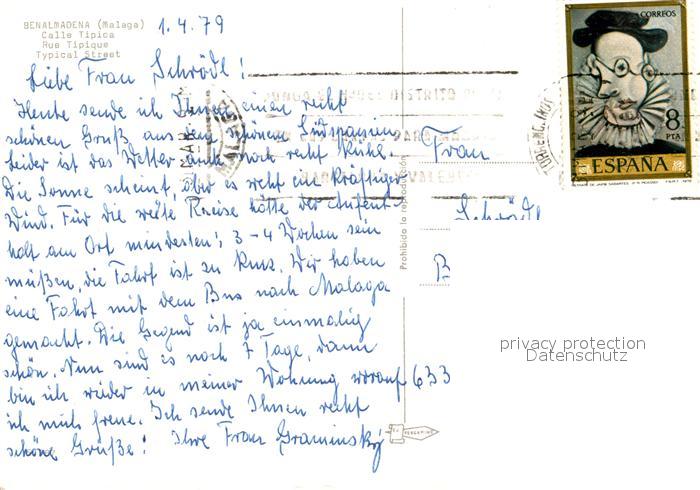 BENALMADENA (Malaga)
Calle Tipica
Rue Tipique
Typical Street
1.4.79
Liebe Frau Schrödl!
Heute sende ich Ihnen einen recht
schönen Gruß aus dem schönen Südspanien
leider ist das Wetter auch noch recht kühl.
Die Sonne scheint, aber es weht ein kräftiger
Wind. Für die weite Reise hätte der Aufent-
halt am Ort mindestens 3-4 Wochen sein
müßen, die Fahrt ist zu kurz. Wir haben
eine Fahrt mit dem Bus nach Malaga
gemacht. Die Gegend ist ja einmalig
schön. Nun sind es noch 7 Tage, dann
bin ich wieder in meiner Wohnung worauf
ich mich freue. Ich sende Ihnen recht
schöne Grüße! Ihre Frau Graminsky
Prohibida la reproducción
CORREOS
8
PTA
ESPAÑA
DISTRITO
PARA
MALAGA
Frau
Schrödl
B
633
privacy protection
Datenschutz